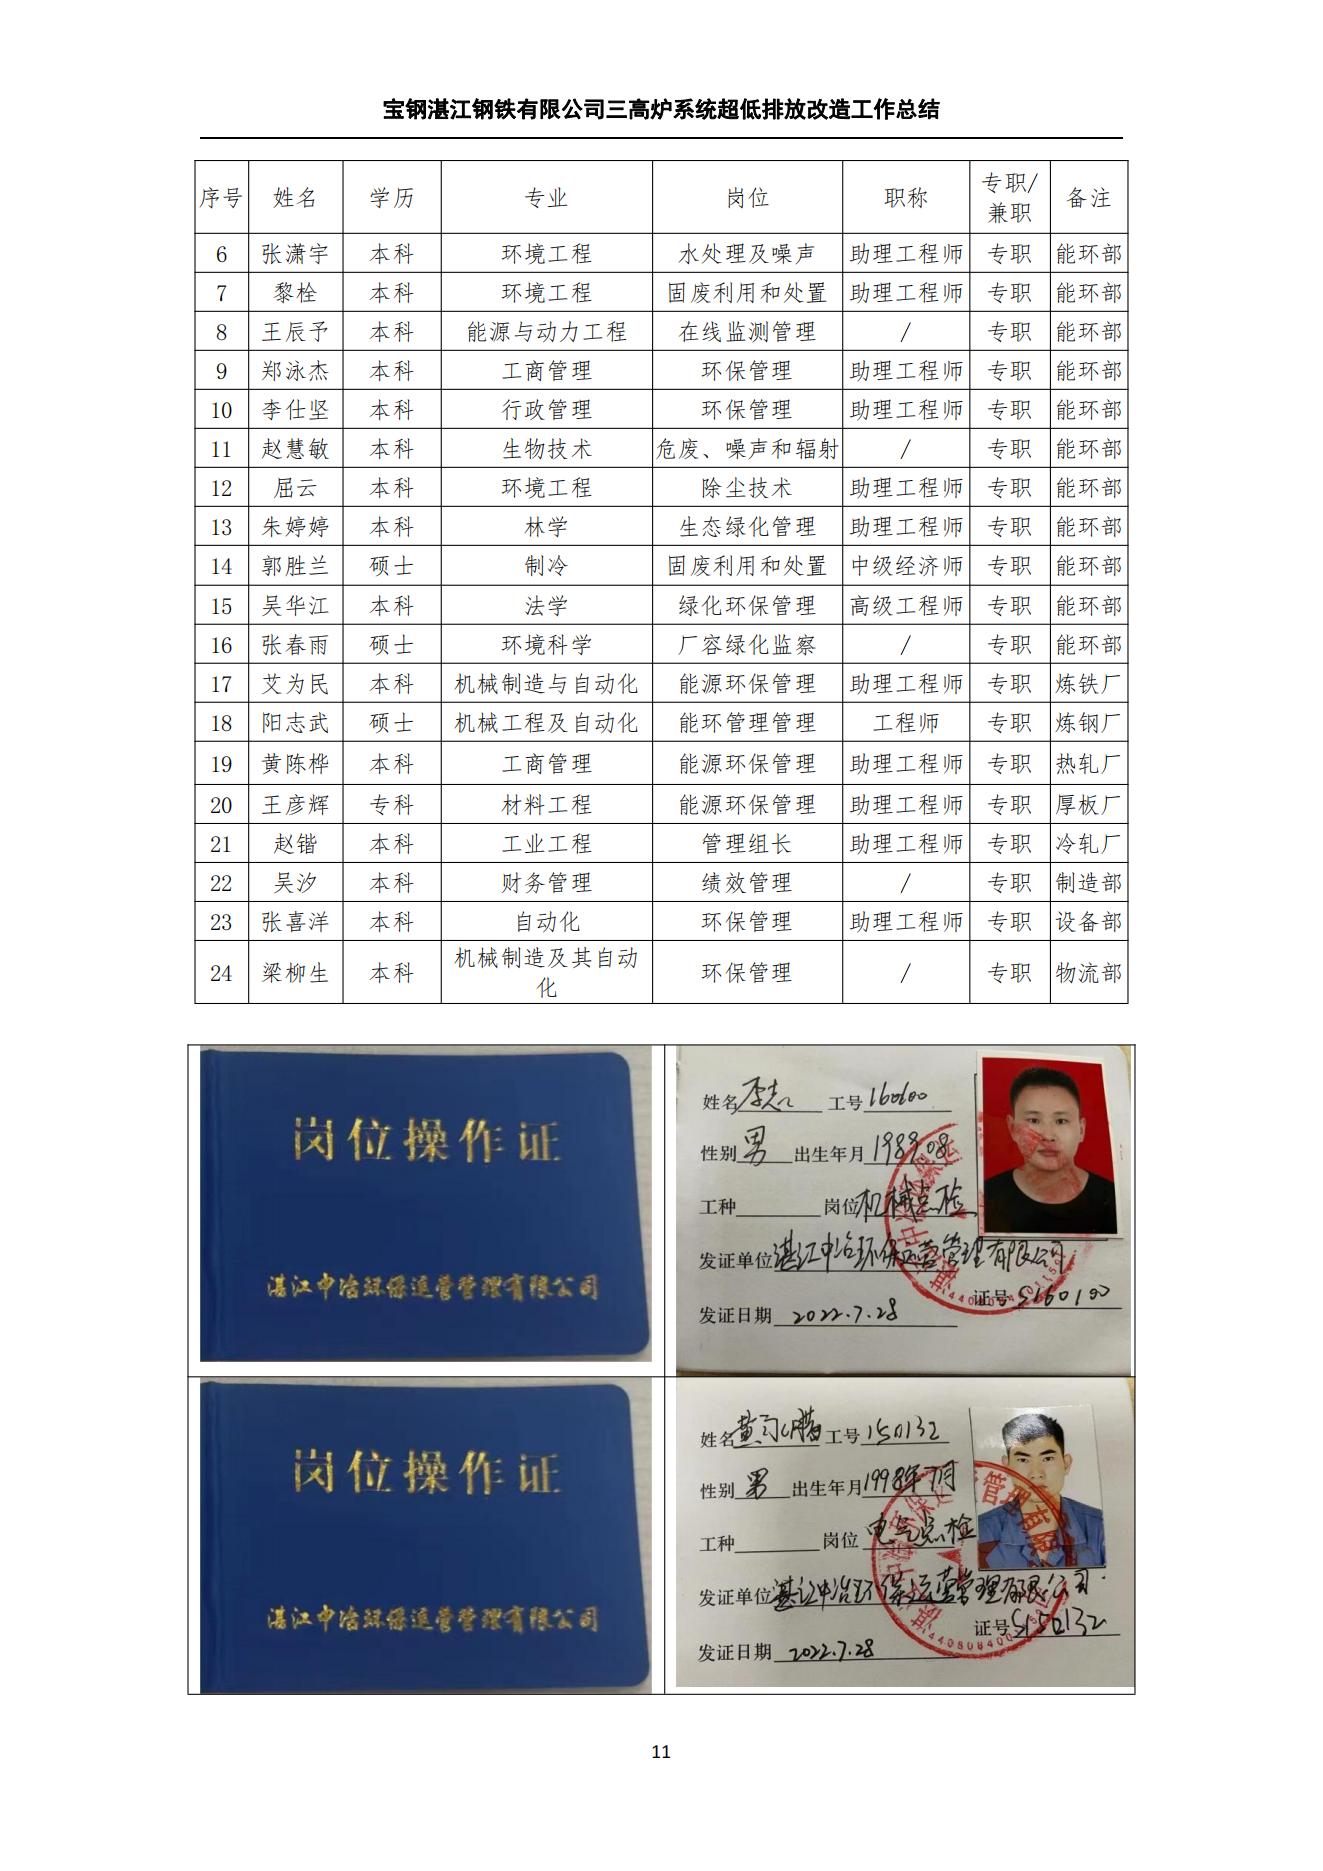 宝钢湛江钢铁有限公司三高炉系统超低排放改造工作总结
序号 姓名 学历 专业 岗位 职称 专职/兼职 备注
6 张潇宇 本科 环境工程 水处理及噪声 助理工程师 专职 能环部
7 黎栓 本科 环境工程 固废利用和处置 助理工程师 专职 能环部
8 王辰予 本科 能源与动力工程 在线监测管理 / 专职 能环部
9 郑泳杰 本科 工商管理 环保管理 助理工程师 专职 能环部
10 李仕坚 本科 行政管理 环保管理 助理工程师 专职 能环部
11 赵慧敏 本科 生物技术 危废、噪声和辐射 / 专职 能环部
12 屈云 本科 环境工程 除尘技术 助理工程师 专职 能环部
13 朱婷婷 本科 林学 生态绿化管理 助理工程师 专职 能环部
14 郭胜兰 硕士 制冷 固废利用和处置 中级经济师 专职 能环部
15 吴华江 本科 法学 绿化环保管理 高级工程师 专职 能环部
16 张春雨 硕士 环境科学 厂容绿化监察 / 专职 能环部
17 艾为民 本科 机械制造与自动化 能源环保管理 助理工程师 专职 炼铁厂
18 阳志武 硕士 机械工程及自动化 能环管理管理 工程师 专职 炼钢厂
19 黄陈桦 本科 工商管理 能源环保管理 助理工程师 专职 热轧厂
20 王彦辉 专科 材料工程 能源环保管理 助理工程师 专职 厚板厂
21 赵锴 本科 工业工程 管理组长 助理工程师 专职 冷轧厂
22 吴汐 本科 财务管理 绩效管理 / 专职 制造部
23 张喜洋 本科 自动化 环保管理 助理工程师 专职 设备部
24 梁柳生 本科 机械制造及其自动化 环保管理 / 专职 物流部
岗位操作证
湛江中冶环保运营管理有限公司
姓名 工号 160100
性别 男 出生年月 1989.08
工种 岗位 机械点检
发证单位 湛江中冶环保运营管理有限公司
证号 S160100
发证日期 2022.7.28
岗位操作证
湛江中冶环保运营管理有限公司
姓名 工号 150132
性别 男 出生年月 1998年7月
工种 岗位 电气点检
发证单位 湛江中冶环保运营管理有限公司
证号 S150132
发证日期 2022.7.28
11